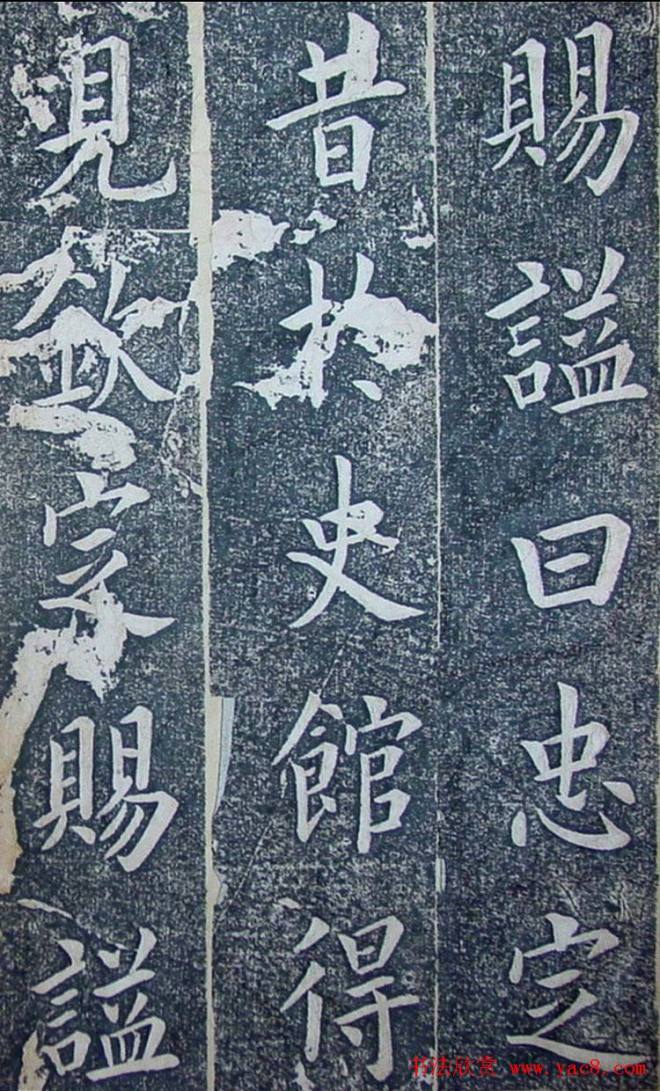 賜謚曰忠定
昔於史館得
覩欽宗賜謚
书法欣赏 www.yac8.com